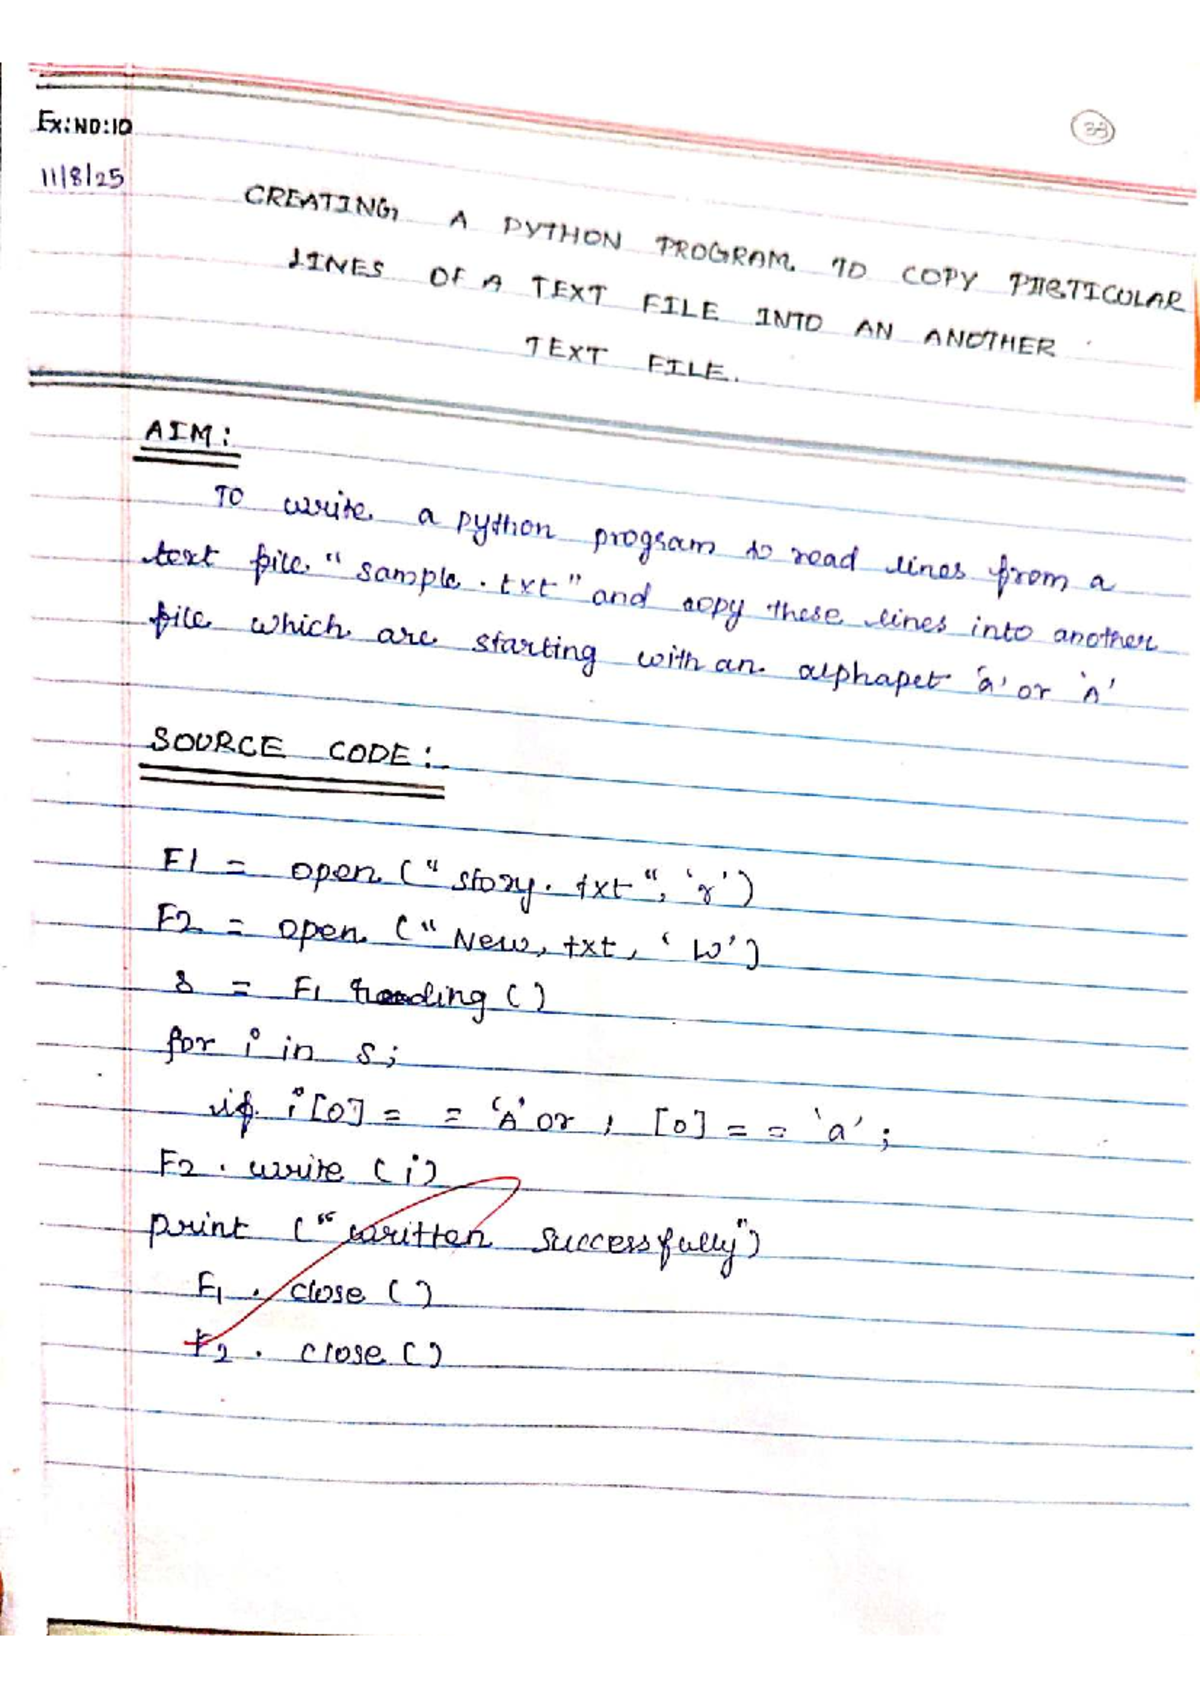 Ex:NO:10
33
11/8/25
CREATING A PYTHON PROGRAM TO COPY PARTICULAR
LINES OF A TEXT FILE INTO AN ANOTHER
TEXT FILE.
AIM:
TO write a python program to read lines from a
text file "sample.txt" and copy these lines into another
file which are starting with an alphapet 'a' or 'A'
SOURCE CODE:
F1 = open ("story.txt", 'r')
F2 = open ("New, txt, 'w')
S = F1 reading ()
for i in s;
if i[0] = = 'A' or , [0] = = 'a' ;
F2 . write (i)
print ("written successfully")
F1 . close ()
F2 . close ()